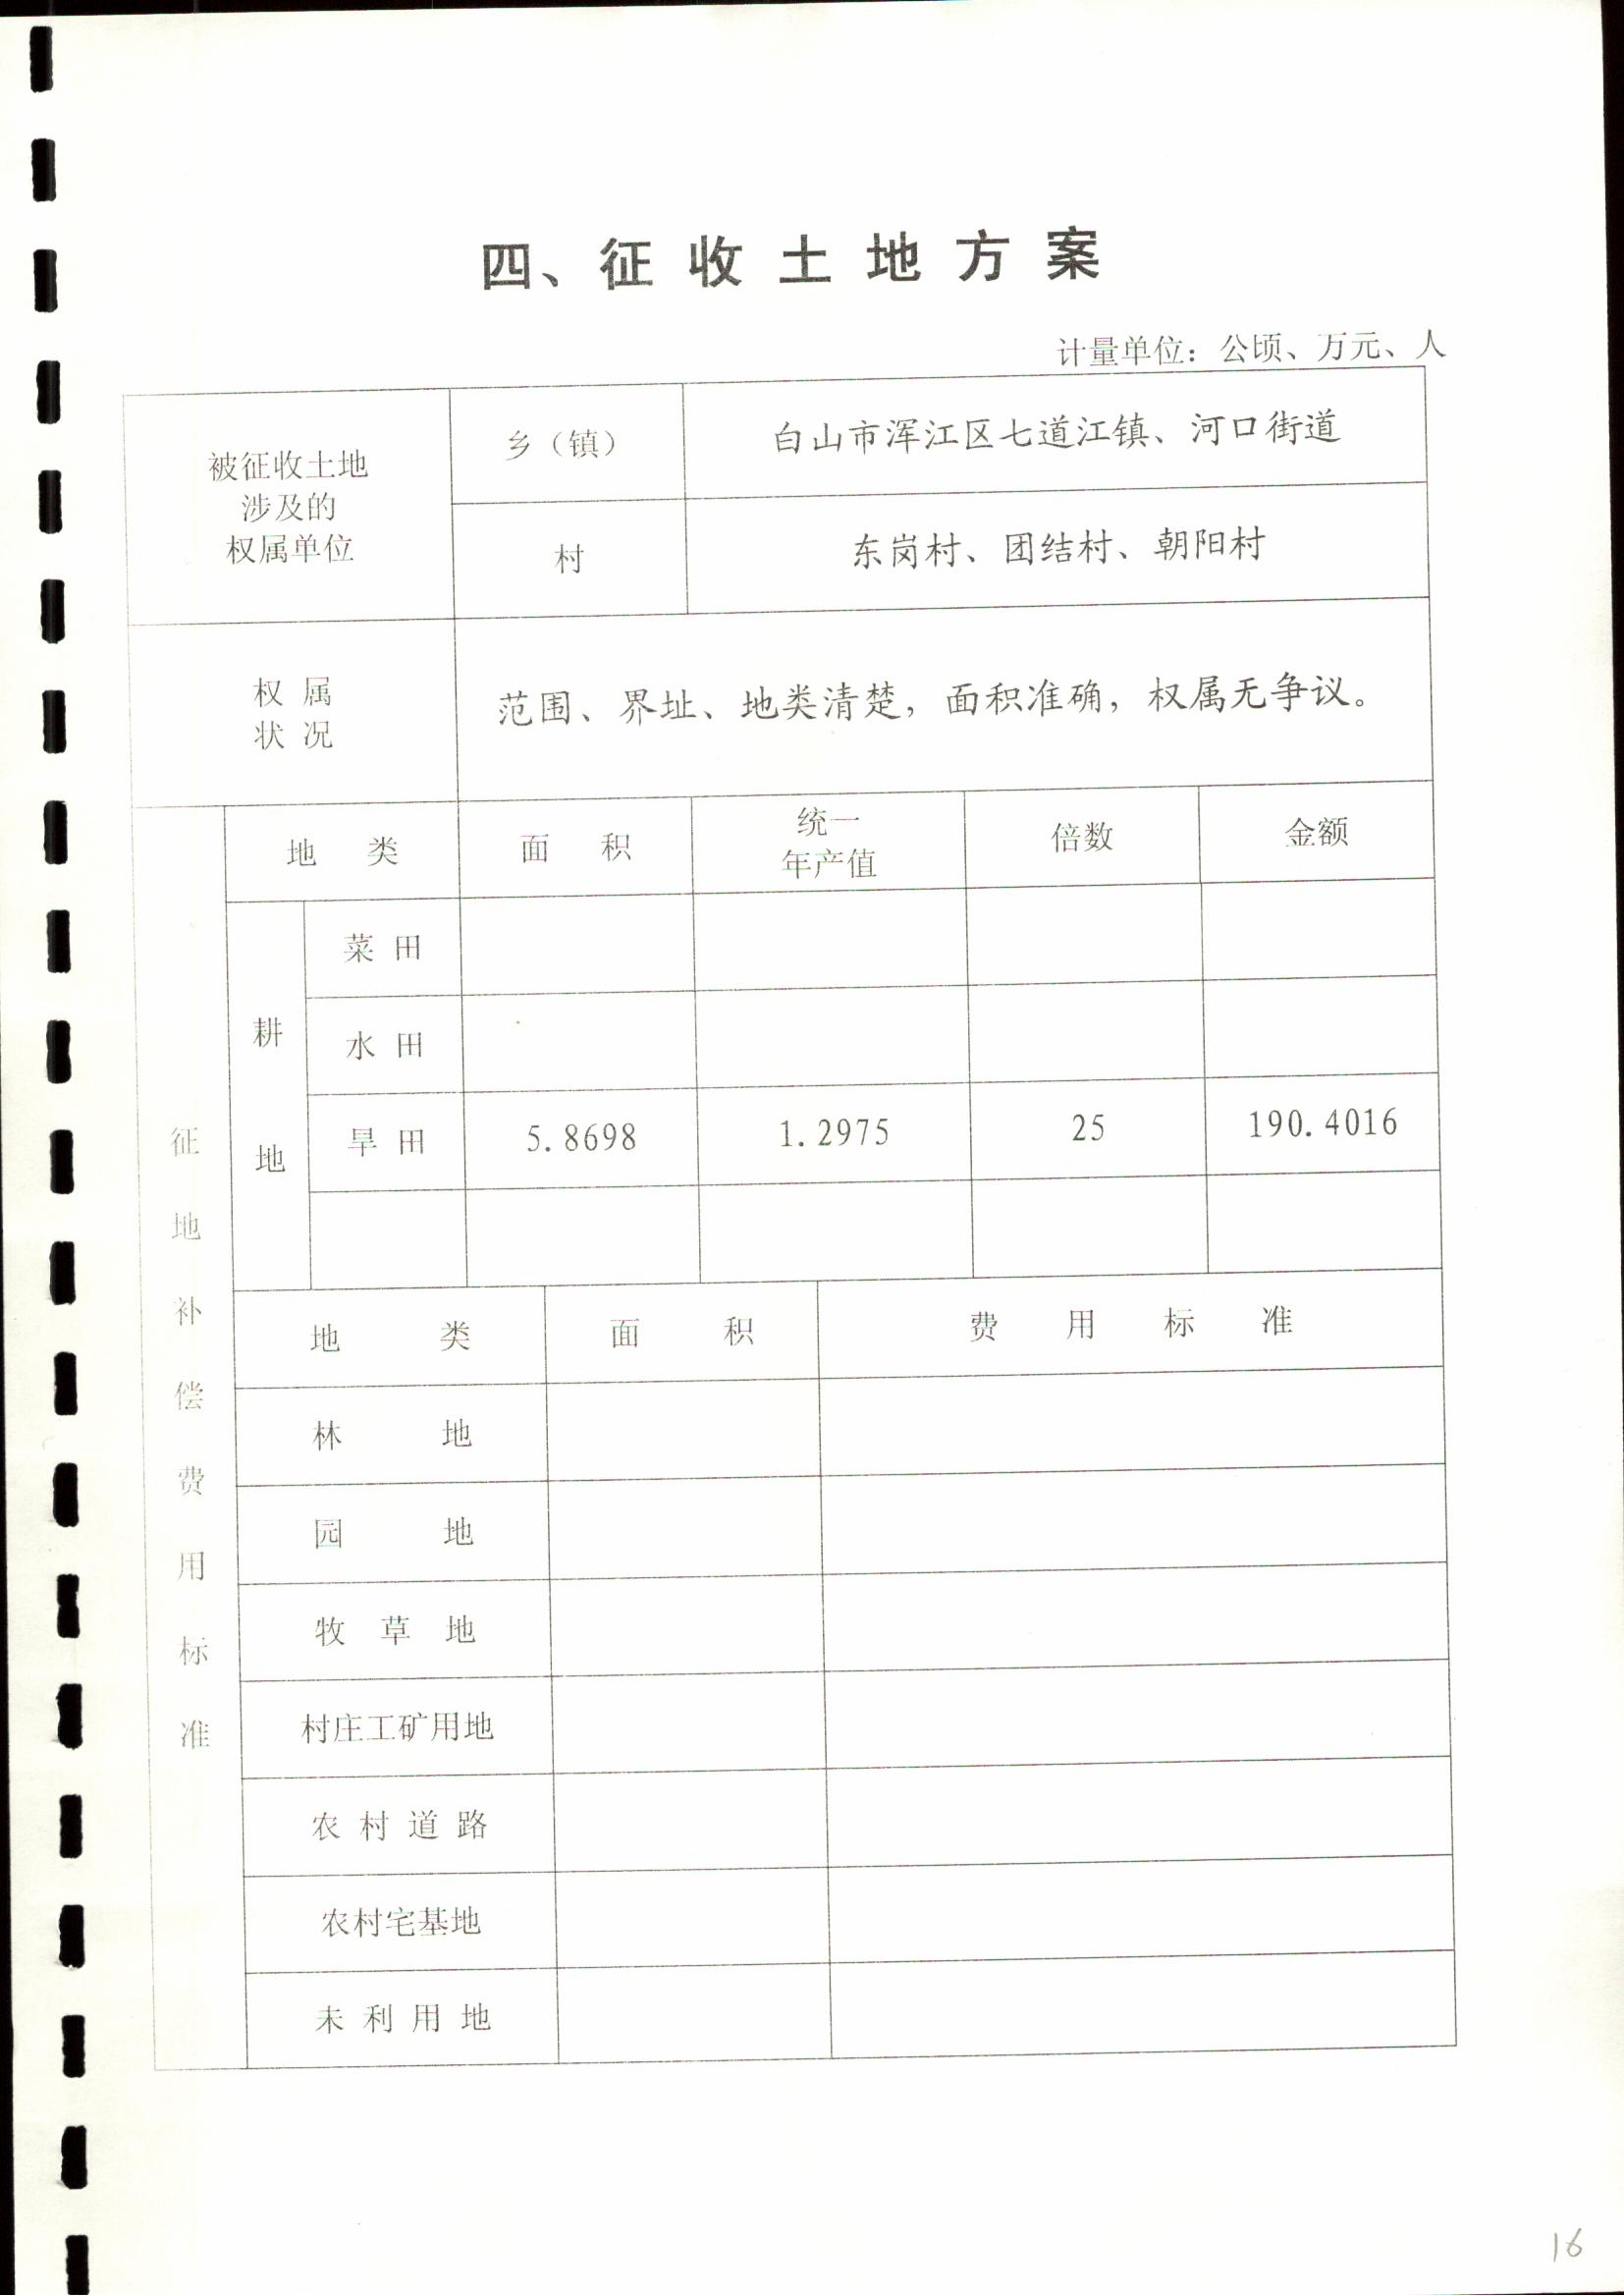 四、征收土地方案
计量单位：公顷、万元、人
被征收土地
涉及的
权属单位
乡（镇）
白山市浑江区七道江镇、河口街道
村
东岗村、团结村、朝阳村
权属
状况
范围、界址、地类清楚，面积准确，权属无争议。
征地补偿费用标准
地类 面积 统一年产值 倍数 金额
耕地
菜田
水田
旱田 5.8698 1.2975 25 190.4016
地类 面积 费用标准
林地
园地
牧草地
村庄工矿用地
农村道路
农村宅基地
未利用地
16